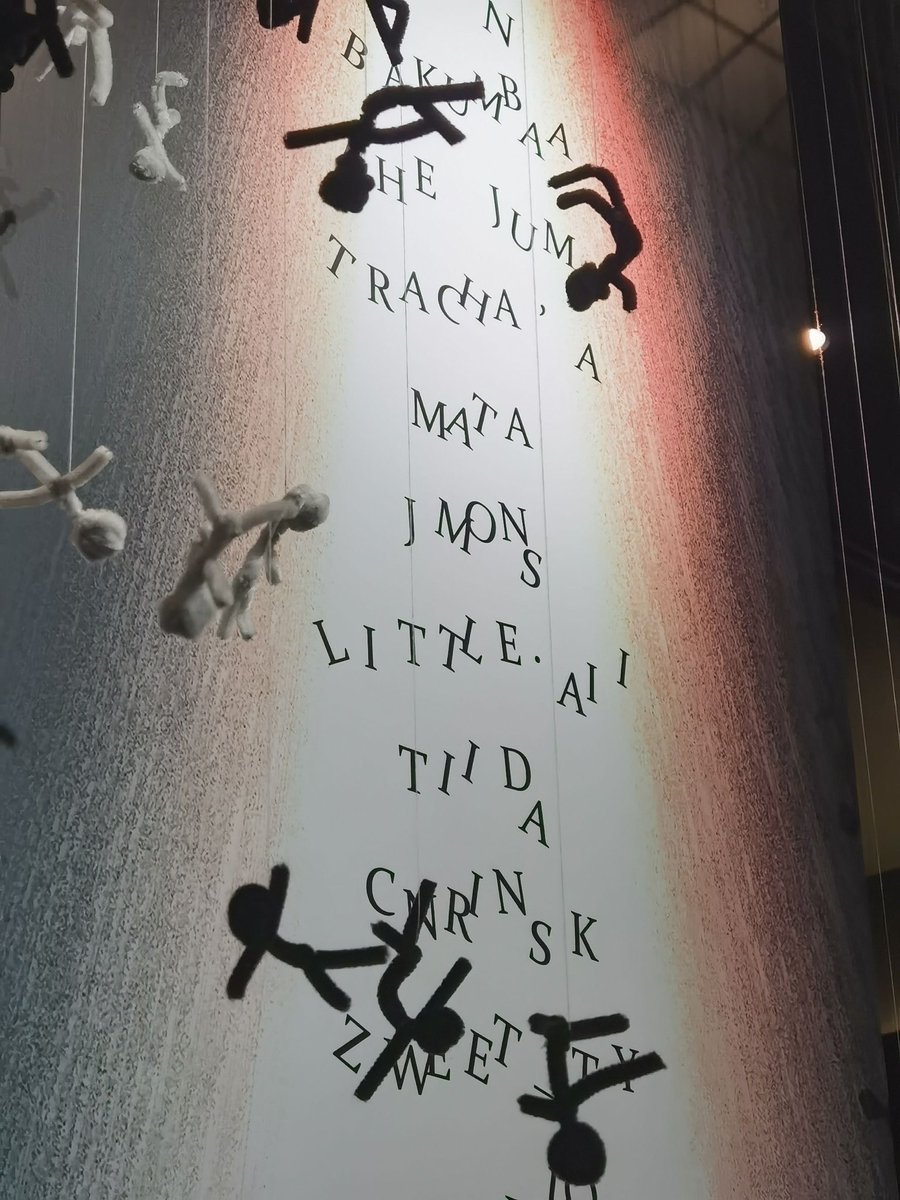 N
BAKUMBAA
HE JUM
TRACHA, A
MATA
JMONS
LITTLE. AII
TIIDA
ZWEET TY